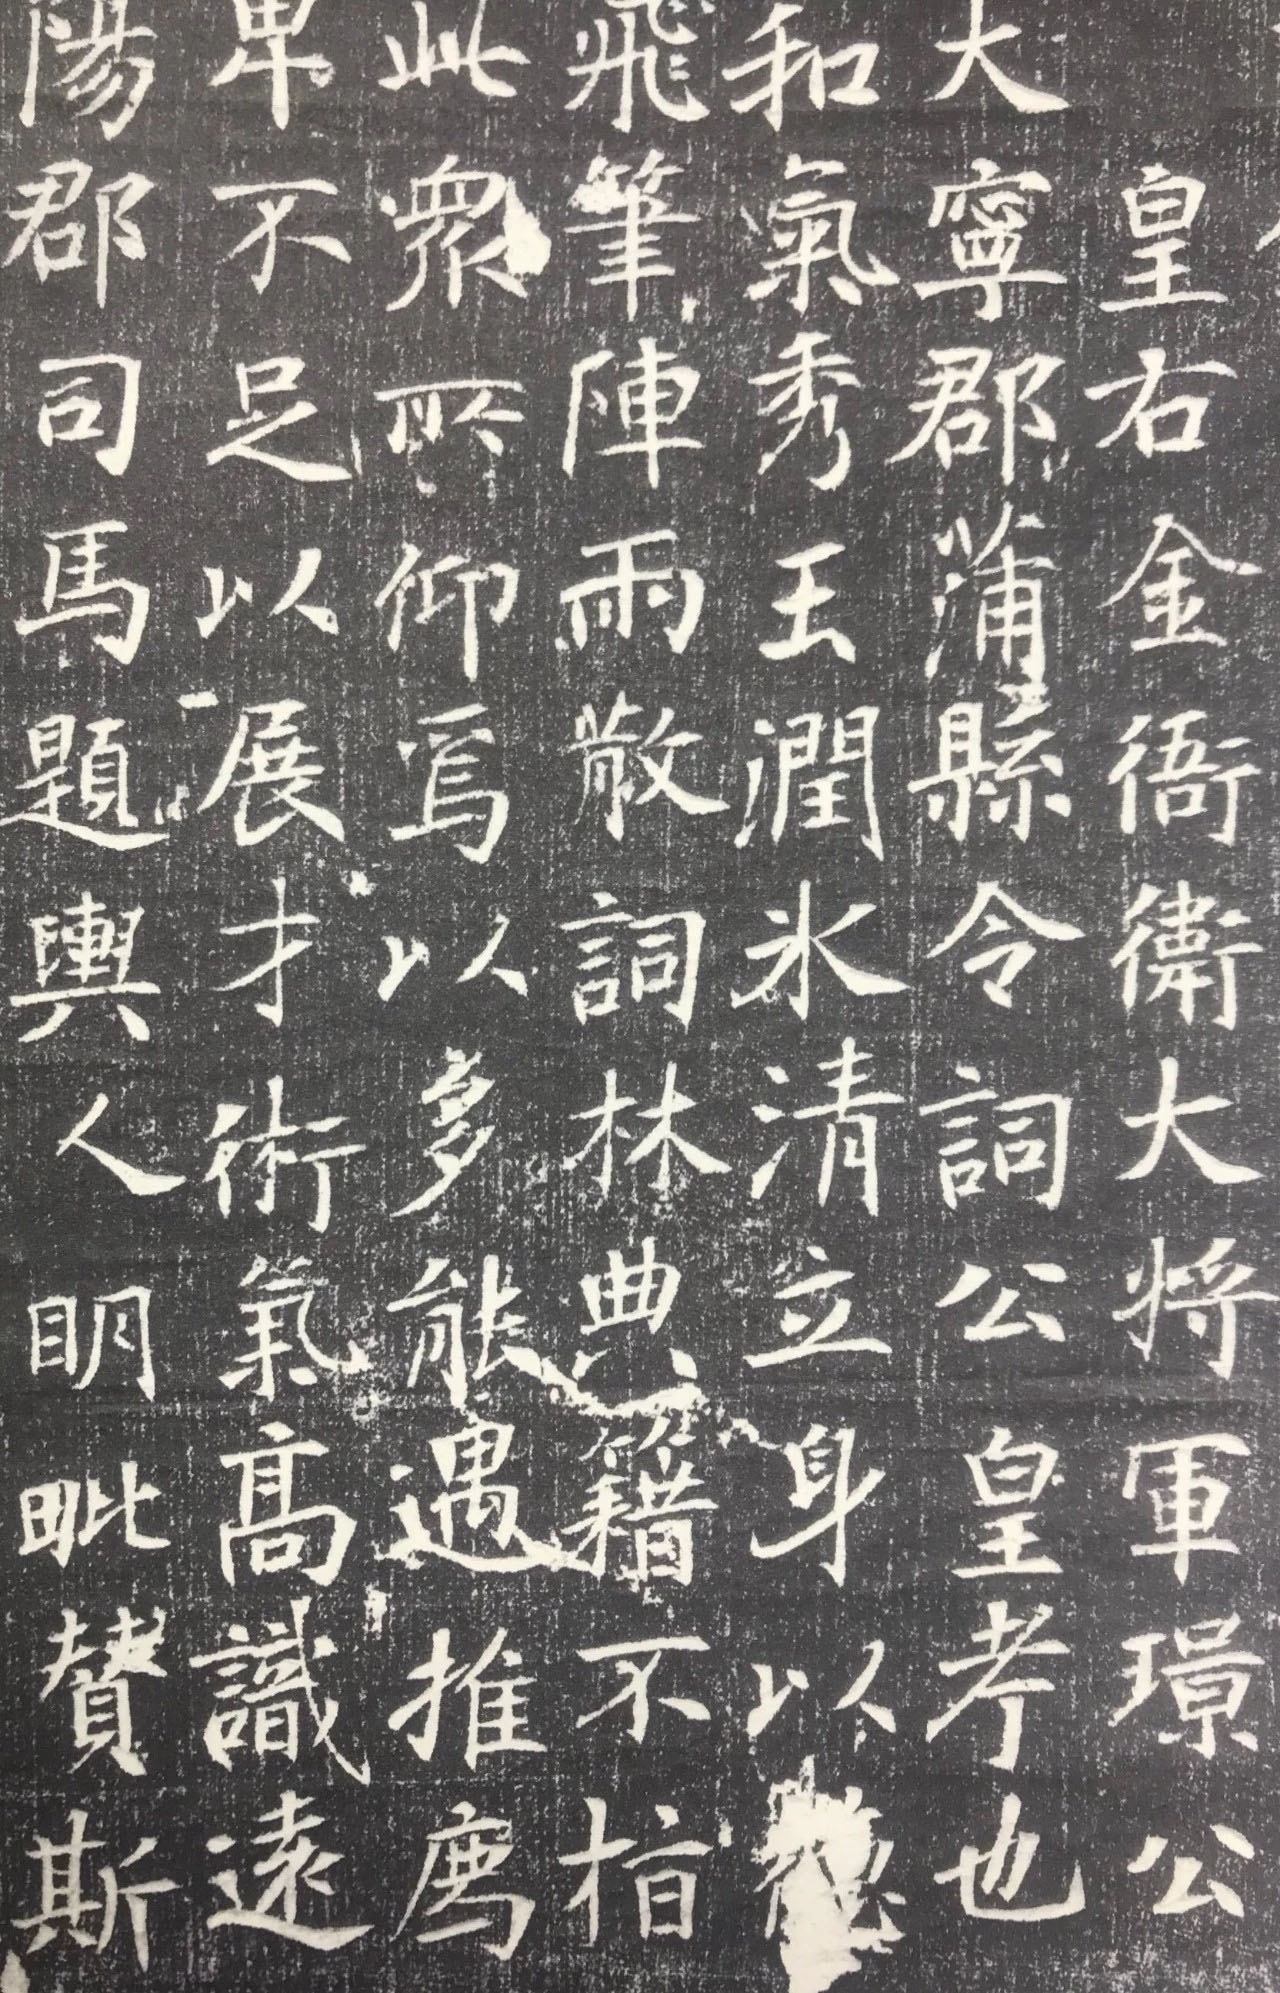 皇右金衙衛大將軍璟公
大寧郡蒲縣令詞公皇考也
和氣秀玉潤冰清立身以德
飛筆陣雨散詞林典籍不指
此眾所仰焉以多能遇推薦
卑不足以展才術氣高識遠
陽郡司馬題輿人明毗贊斯